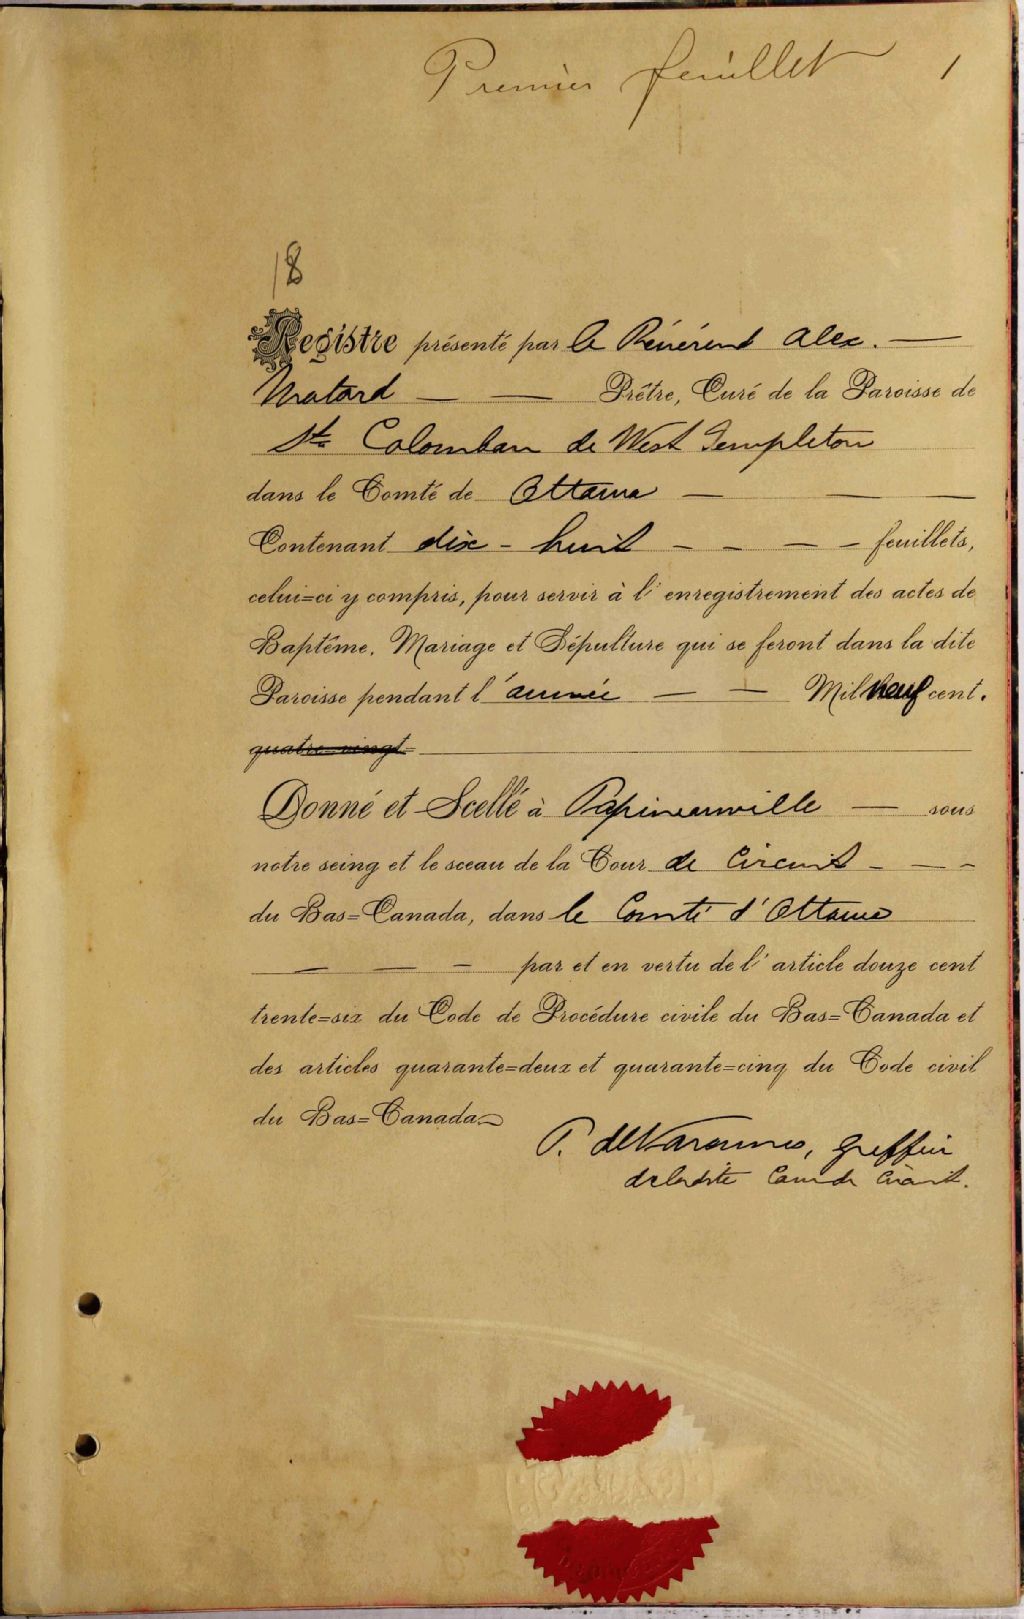 Premier feuillet 1
18
Registre présenté par le Révérend Alex. —
Motard — — Prêtre, Curé de la Paroisse de
St. Colomban de West Templeton
dans le Comté de Ottawa — — —
Contenant dix-huit - - — - feuillets,
celui=ci y compris, pour servir à l'enregistrement des actes de
Baptême, Mariage et Sépulture qui se feront dans la dite
Paroisse pendant l'année — — Mil neuf cent.
quatre-vingt-
Donné et Scellé à Papineauville — sous
notre seing et le sceau de la Cour de Circuit - — -
du Bas=Canada, dans le Comté d'Ottawa
— — - par et en vertu de l'article douze cent
trente=six du Code de Procédure civile du Bas=Canada et
des articles quarante=deux et quarante=cinq du Code civil
du Bas=Canada.
P. deVarennes, Greffier
de la dite Cour de Circuit.